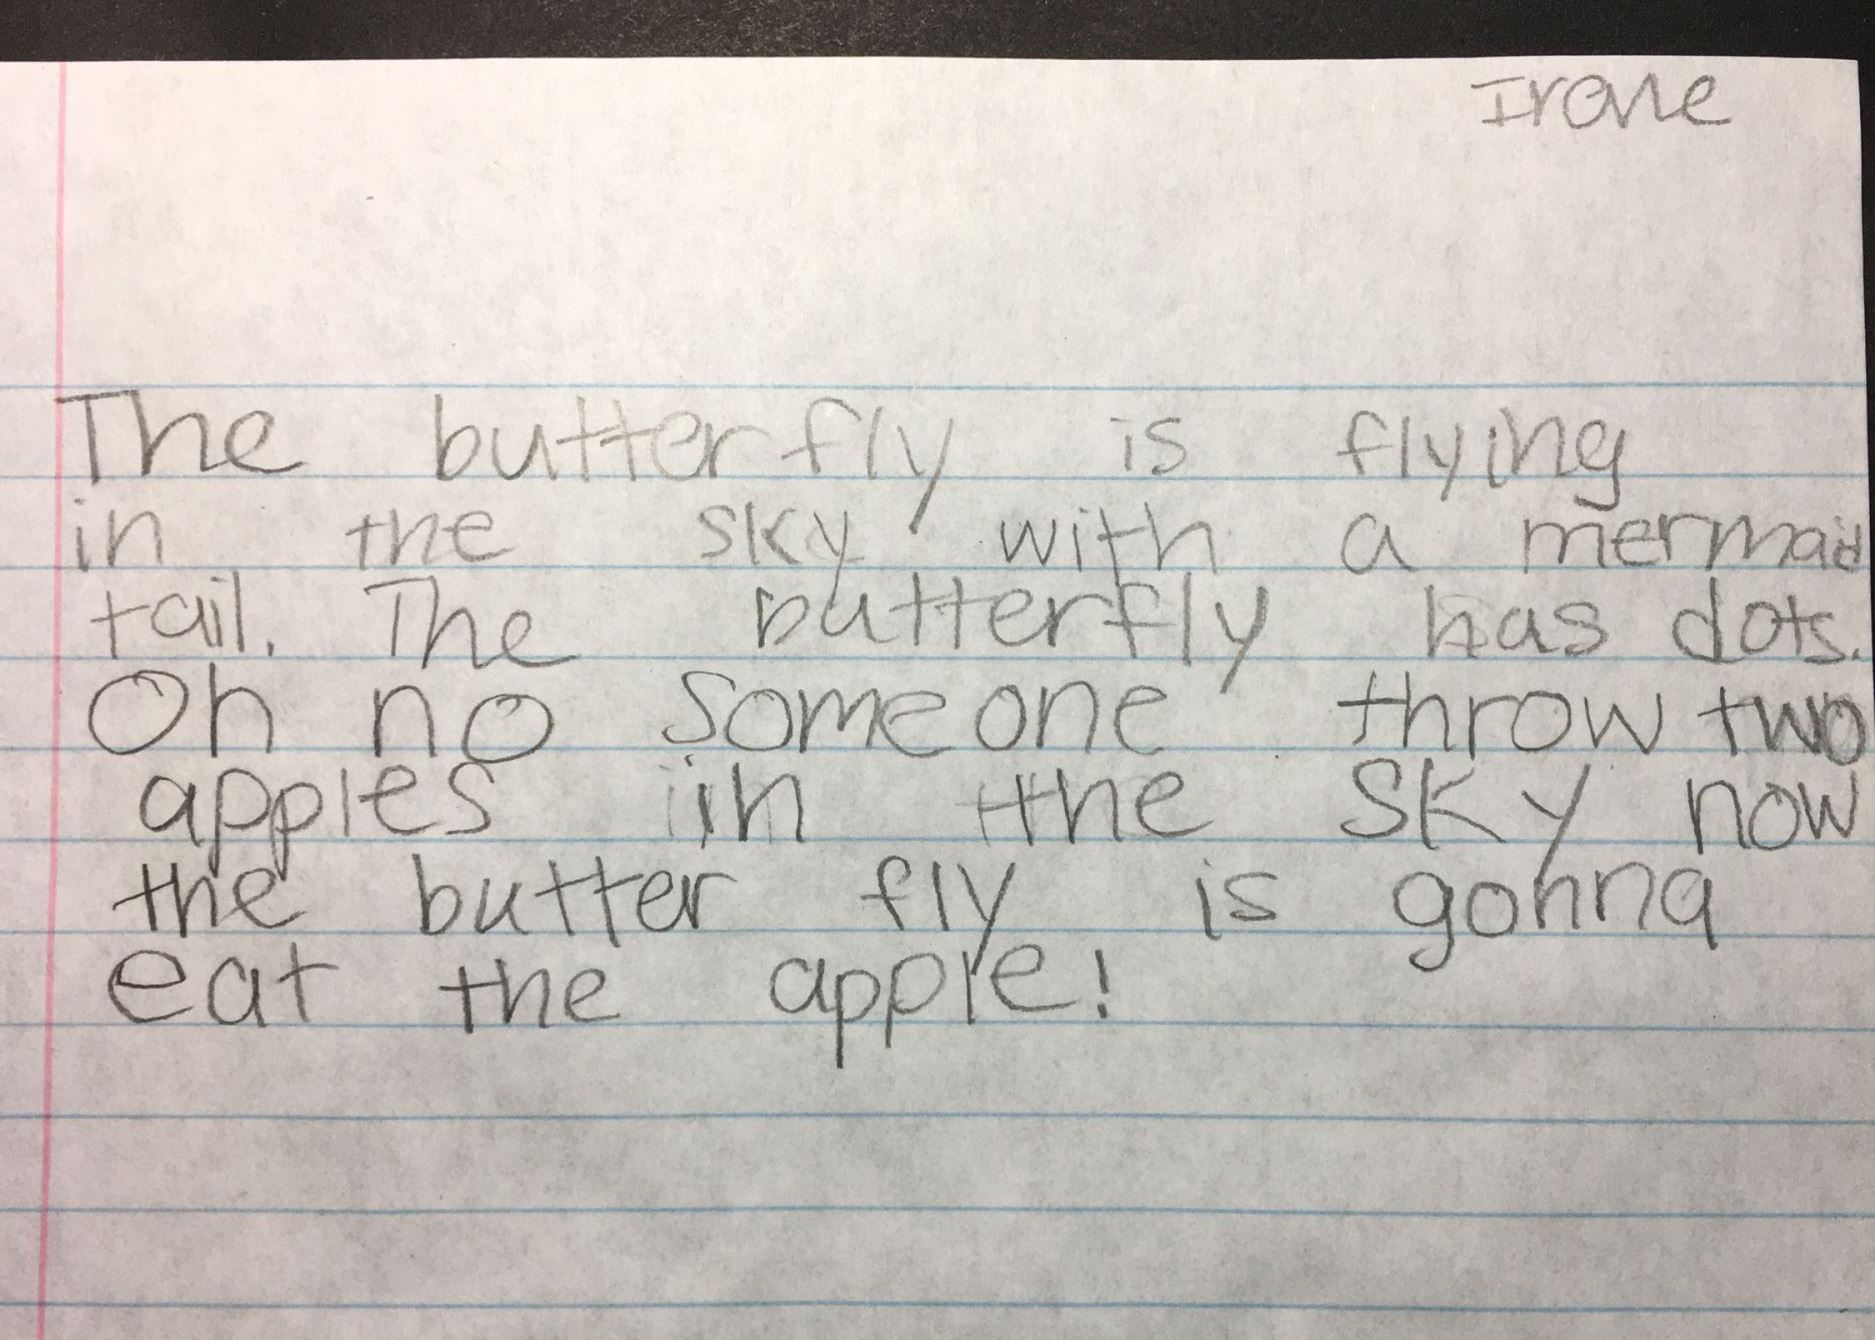 Irone
The butterfly is flying
in the sky with a mermaid
tail. The butterfly has dots.
Oh no someone throw two
apples in the sky now
the butter fly is gonna
eat the apple!